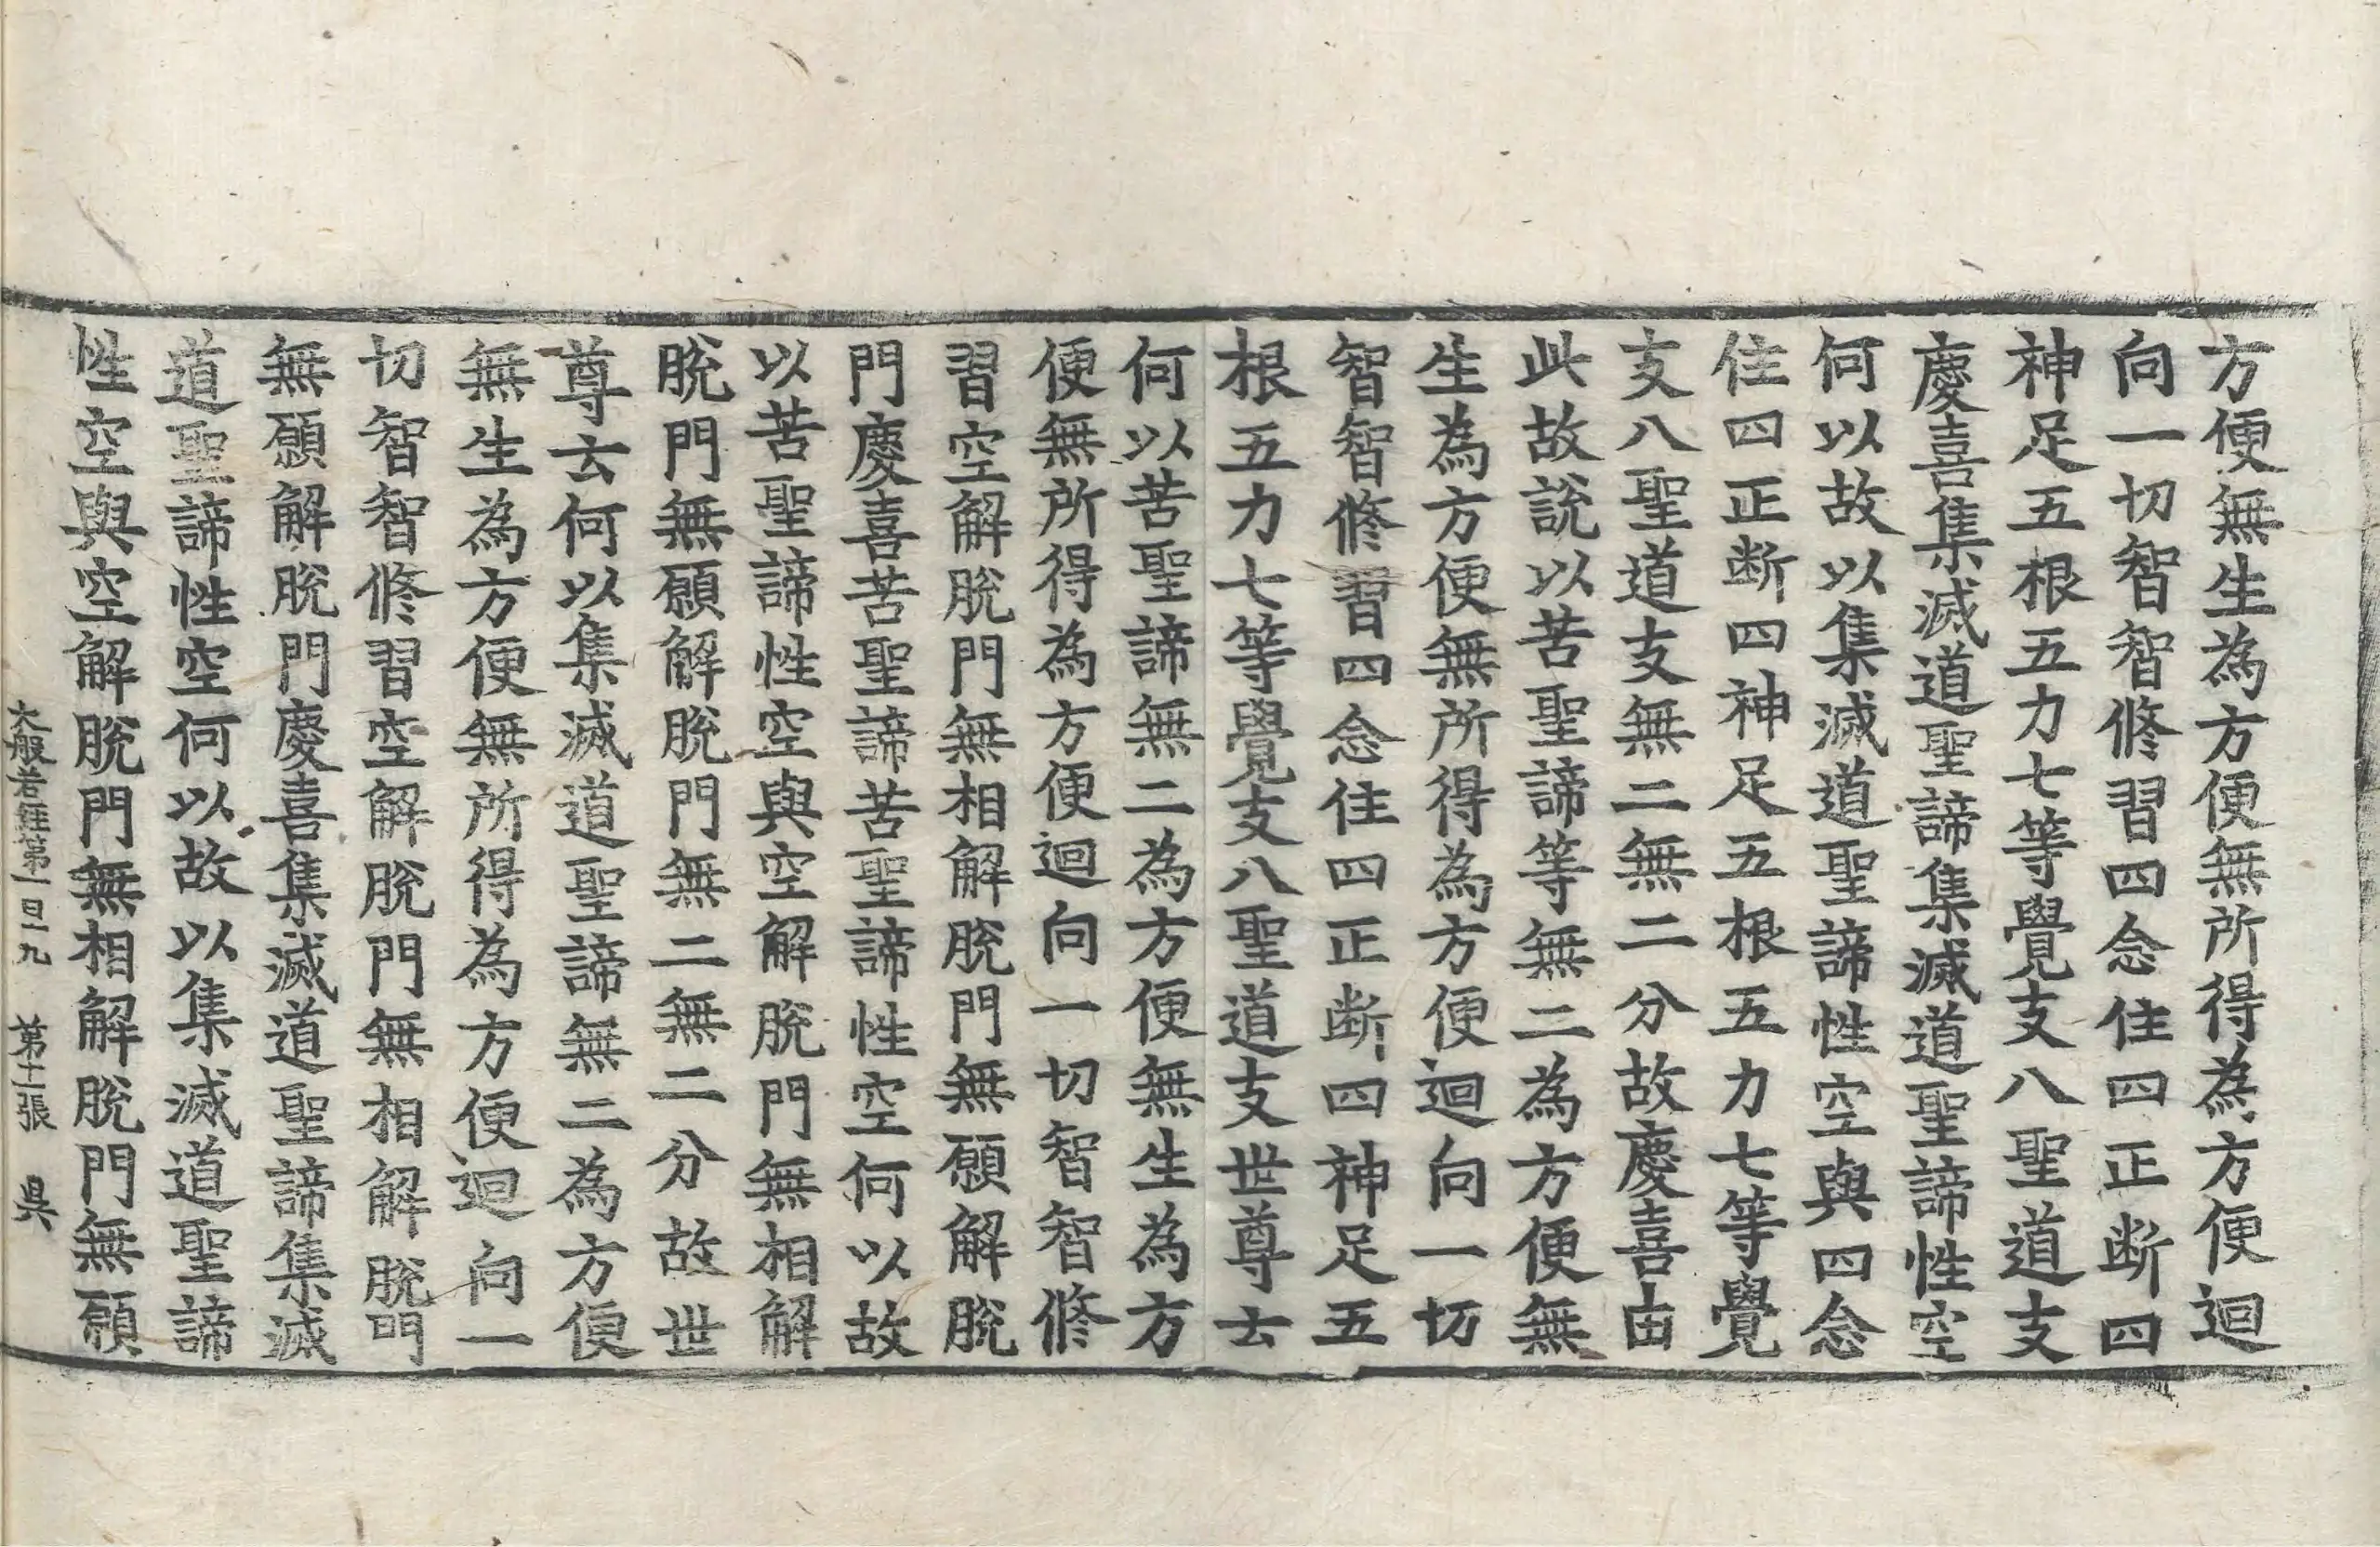 方便無生為方便無所得為方便迴
向一切智智修習四念住四正断四
神足五根五力七等覺支八聖道支
慶喜集滅道聖諦集滅道聖諦性空
何以故以集滅道聖諦性空與四念
住四正断四神足五根五力七等覺
支八聖道支無二無二分故慶喜由
此故說以苦聖諦等無二為方便無
生為方便無所得為方便迴向一切
智智修習四念住四正断四神足五
根五力七等覺支八聖道支世尊云
何以苦聖諦無二為方便無生為方
便無所得為方便迴向一切智智修
習空解脫門無相解脫門無願解脫
門慶喜苦聖諦苦聖諦性空何以故
以苦聖諦性空與空解脫門無相解
脫門無願解脫門無二無二分故世
尊云何以集滅道聖諦無二為方便
無生為方便無所得為方便迴向一
切智智修習空解脫門無相解脫門
無願解脫門慶喜集滅道聖諦集滅
道聖諦性空何以故以集滅道聖諦
性空與空解脫門無相解脫門無願
大般若經第一百一九　第十二張　吳